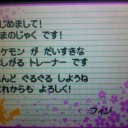 じめまして！
まのじゃく です！
ケモン が だいすきな
しがる トレーナー です
んど ぐるぐる しようね
れからも よろしく！
フィン